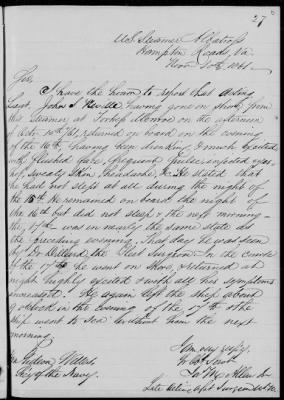 27
U.S. Steamer Albatross
Hampton Roads, Va.
Novr 20th 1861.
Sir,
I have the honor to report that Acting
Lieut. John S. Neville, having gone on shore from
this Steamer, at Fortress Monroe on the afternoon
of Octr 15th/61, returned on board on the evening
of the 16th, having been drinking & much excited
with flushed face, frequent pulse, injected eyes,
sweaty skin, headache, &c. He stated that
he had not slept at all during the night of
the 15th. He remained on board the night of
the 16th but did not sleep & the next morning
the 17th was in nearly the same state as
the preceding evening. That day he was seen
by Dr the Fleet Surgeon. In the course
of the 17th he went on shore, returned at
night highly excited & with all his symptoms
increased. He again left the ship about
o'clock in the evening of the 17th & the
ship went to Sea without him the next
morning.
I am very respy,
Yr Obt Servt
Late Acting Asst Surgeon
Gideon Welles
Secy of the Navy.